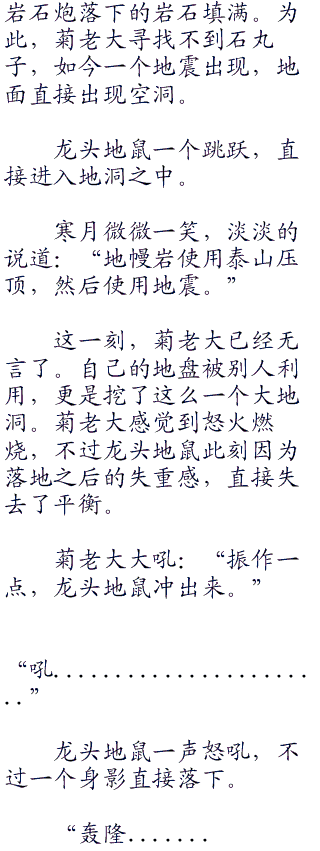 岩石炮落下的岩石填满。为
此，菊老大寻找不到石丸
子，如今一个地震出现，地
面直接出现空洞。
龙头地鼠一个跳跃，直
接进入地洞之中。
寒月微微一笑，淡淡的
说道：“地幔岩使用泰山压
顶，然后使用地震。”
这一刻，菊老大已经无
言了。自己的地盘被别人利
用，更是挖了这么一个大地
洞。菊老大感觉到怒火燃
烧，不过龙头地鼠此刻因为
落地之后的失重感，直接失
去了平衡。
菊老大大吼：“振作一
点，龙头地鼠冲出来。”
“吼.....................
..”
龙头地鼠一声怒吼，不
过一个身影直接落下。
“轰隆.......